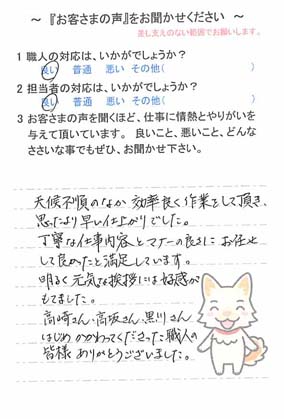 ～ 『お客さまの声』をお聞かせください ～
差し支えのない範囲でお願いします。
1 職人の対応は、いかがでしょうか？
良い 普通 悪い その他( )
2 担当者の対応は、いかがでしょうか？
良い 普通 悪い その他( )
3 お客さまの声を聞くほど、仕事に情熱とやりがいを
与えて頂いています。 良いこと、悪いこと、どんな
ささいな事でもぜひ、お聞かせ下さい。
天候不順のなか 効率良く作業をして頂き、
思ったより早い仕上がりでした。
丁寧な仕事内容とマナーの良さに お任せ
して良かったと満足しています。
明るく元気な挨拶には好感が
もてました。
高崎さん、高坂さん、黒川さん
はじめ かかわってくださった職人の
皆様 ありがとうございました。